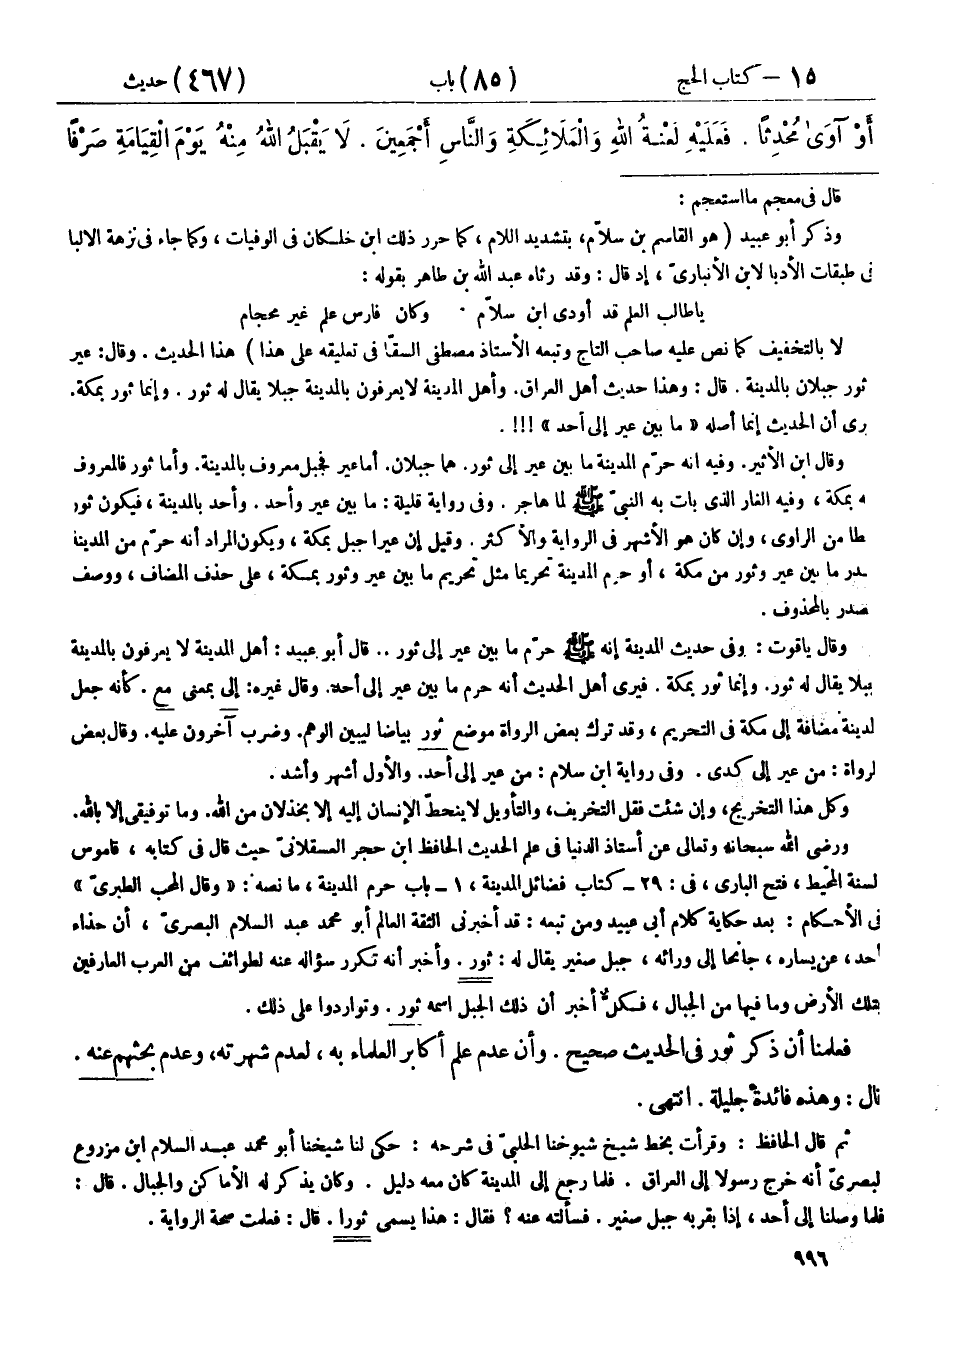 ١٥ – كتاب الحج (٨٥) باب (٤٦٧) حديث
أَوْ آوَىٰ مُحْدِثًا . فَعَلَيْهِ لَعْنَةُ اللهِ وَالْمَلَائِكَةِ وَالنَّاسِ أَجْمَعِينَ . لَا يَقْبَلُ اللهُ مِنْهُ يَوْمَ الْقِيَامَةِ صَرْفًا
قال فى معجم ما استعجم :
وذكر أبو عبيد ( هو القاسم بن سلاّم، بتشديد اللام ، كما حرر ذلك ابن خلكان فى الوفيات ، وكما جاء فى نزهة الالبا
فى طبقات الأدبا لابن الأنبارىّ ، إد قال : وقد رثاه عبد الله بن طاهر بقوله :
ياطالب العلم قد أودى ابن سلاّم . وكان فارس علم غير محجام
لا بالتخفيف كما نص عليه صاحب التاج وتبعه الأستاذ مصطفى السقا فى تعليقه على هذا ) هذا الحديث . وقال: عير
ثور جبلان بالمدينة . قال : وهذا حديث أهل العراق. وأهل المدينة لايعرفون بالمدينة جبلا يقال له ثور . وإنما ثور بمكة.
رى أن الحديث إنما أصله « ما بين عير إلى أحد » !!! .
وقال ابن الأثير. وفيه انه حرّم المدينة ما بين عير إلى ثور. هما جبلان. أما عير فجبل معروف بالمدينة. وأما ثور فالمعروف
ه بمكة ، وفيه الغار الذى بات به النبىّ ﷺ لما هاجر . وفى رواية قليلة : ما بين عير وأحد . وأحد بالمدينة ، فيكون ثور
طا من الراوى ، وإن كان هو الأشهر فى الرواية والأكثر . وقيل إن عيرا جبل بمكة ، ويكون المراد أنه حرّم من المدينة
ـدر ما بين عير وثور من مكة ، أو حرم المدينة تحريما مثل تحريم ما بين عير وثور بمكة ، على حذف المضاف ، ووصف
صدر بالمحذوف .
وقال ياقوت : وفى حديث المدينة إنه ﷺ حرّم ما بين عير إلى ثور .. قال أبو عبيد : أهل المدينة لا يعرفون بالمدينة
ـبلا يقال له ثور. وإنما ثور بمكة . فيرى أهل الحديث أنه حرم ما بين عير إلى أحد. وقال غيره: إلى بمعنى مع . كأنه جعل
لدينة مضافة إلى مكة فى التحريم ، وقد ترك بعض الرواة موضع ثور بياضا ليبين الوهم. وضرب آخرون عليه. وقال بعض
لرواة : من عير إلى كدى . وفى رواية ابن سلام : من عير إلى أحد. والأول أشهر وأشد .
وكل هذا التخريج، وإن شئت فقل التخريف، والتأويل لا ينحطّ الإنسان إليه إلا بخذلان من الله. وما توفيقى إلا بالله.
ورضى الله سبحانه وتعالى عن أستاذ الدنيا فى علم الحديث الحافظ ابن حجر العسقلانىّ حيث قال فى كتابه ، قاموس
لسنة المحيط ، فتح البارى ، فى : ٢٩ ــ كتاب فضائل المدينة ، ١ ــ باب حرم المدينة ، ما نصه : « وقال المحب الطبرىّ »
فى الأحكام : بعد حكاية كلام أبى عبيد ومن تبعه : قد أخبرنى الثقة العالم أبو محمد عبد السلام البصرىّ ، أن حذاء
احد، عن يساره ، جانحا إلى ورائه ، جبل صغير يقال له : ثور . وأخبر أنه تكرر سؤاله عنه لطوائف من العرب العارفين
بتلك الأرض وما فيها من الجبال ، فكلٌّ أخبر أن ذلك الجبل اسمه ثور . وتواردوا على ذلك .
فعلمنا أن ذكر ثور فى الحديث صحيح . وأن عدم علم أكابر العلماء به ، لعدم شهرته، وعدم بحثهم عنه .
قال : وهذه فائدة جليلة . انتهى .
ثم قال الحافظ : وقرأت بخط شيخ شيوخنا الحلبىّ فى شرحه : حكى لنا شيخنا أبو محمد عبد السلام ابن مزروع
لبصرىّ أنه خرج رسولا إلى العراق . فلما رجع إلى المدينة كان معه دليل . وكان يذكر له الأماكن والجبال . قال :
فلما وصلنا إلى أحد ، إذا بقربه جبل صغير . فسألته عنه ؟ فقال : هذا يسمى ثورا . قال : فعلمت صحة الرواية .
٩٩٦